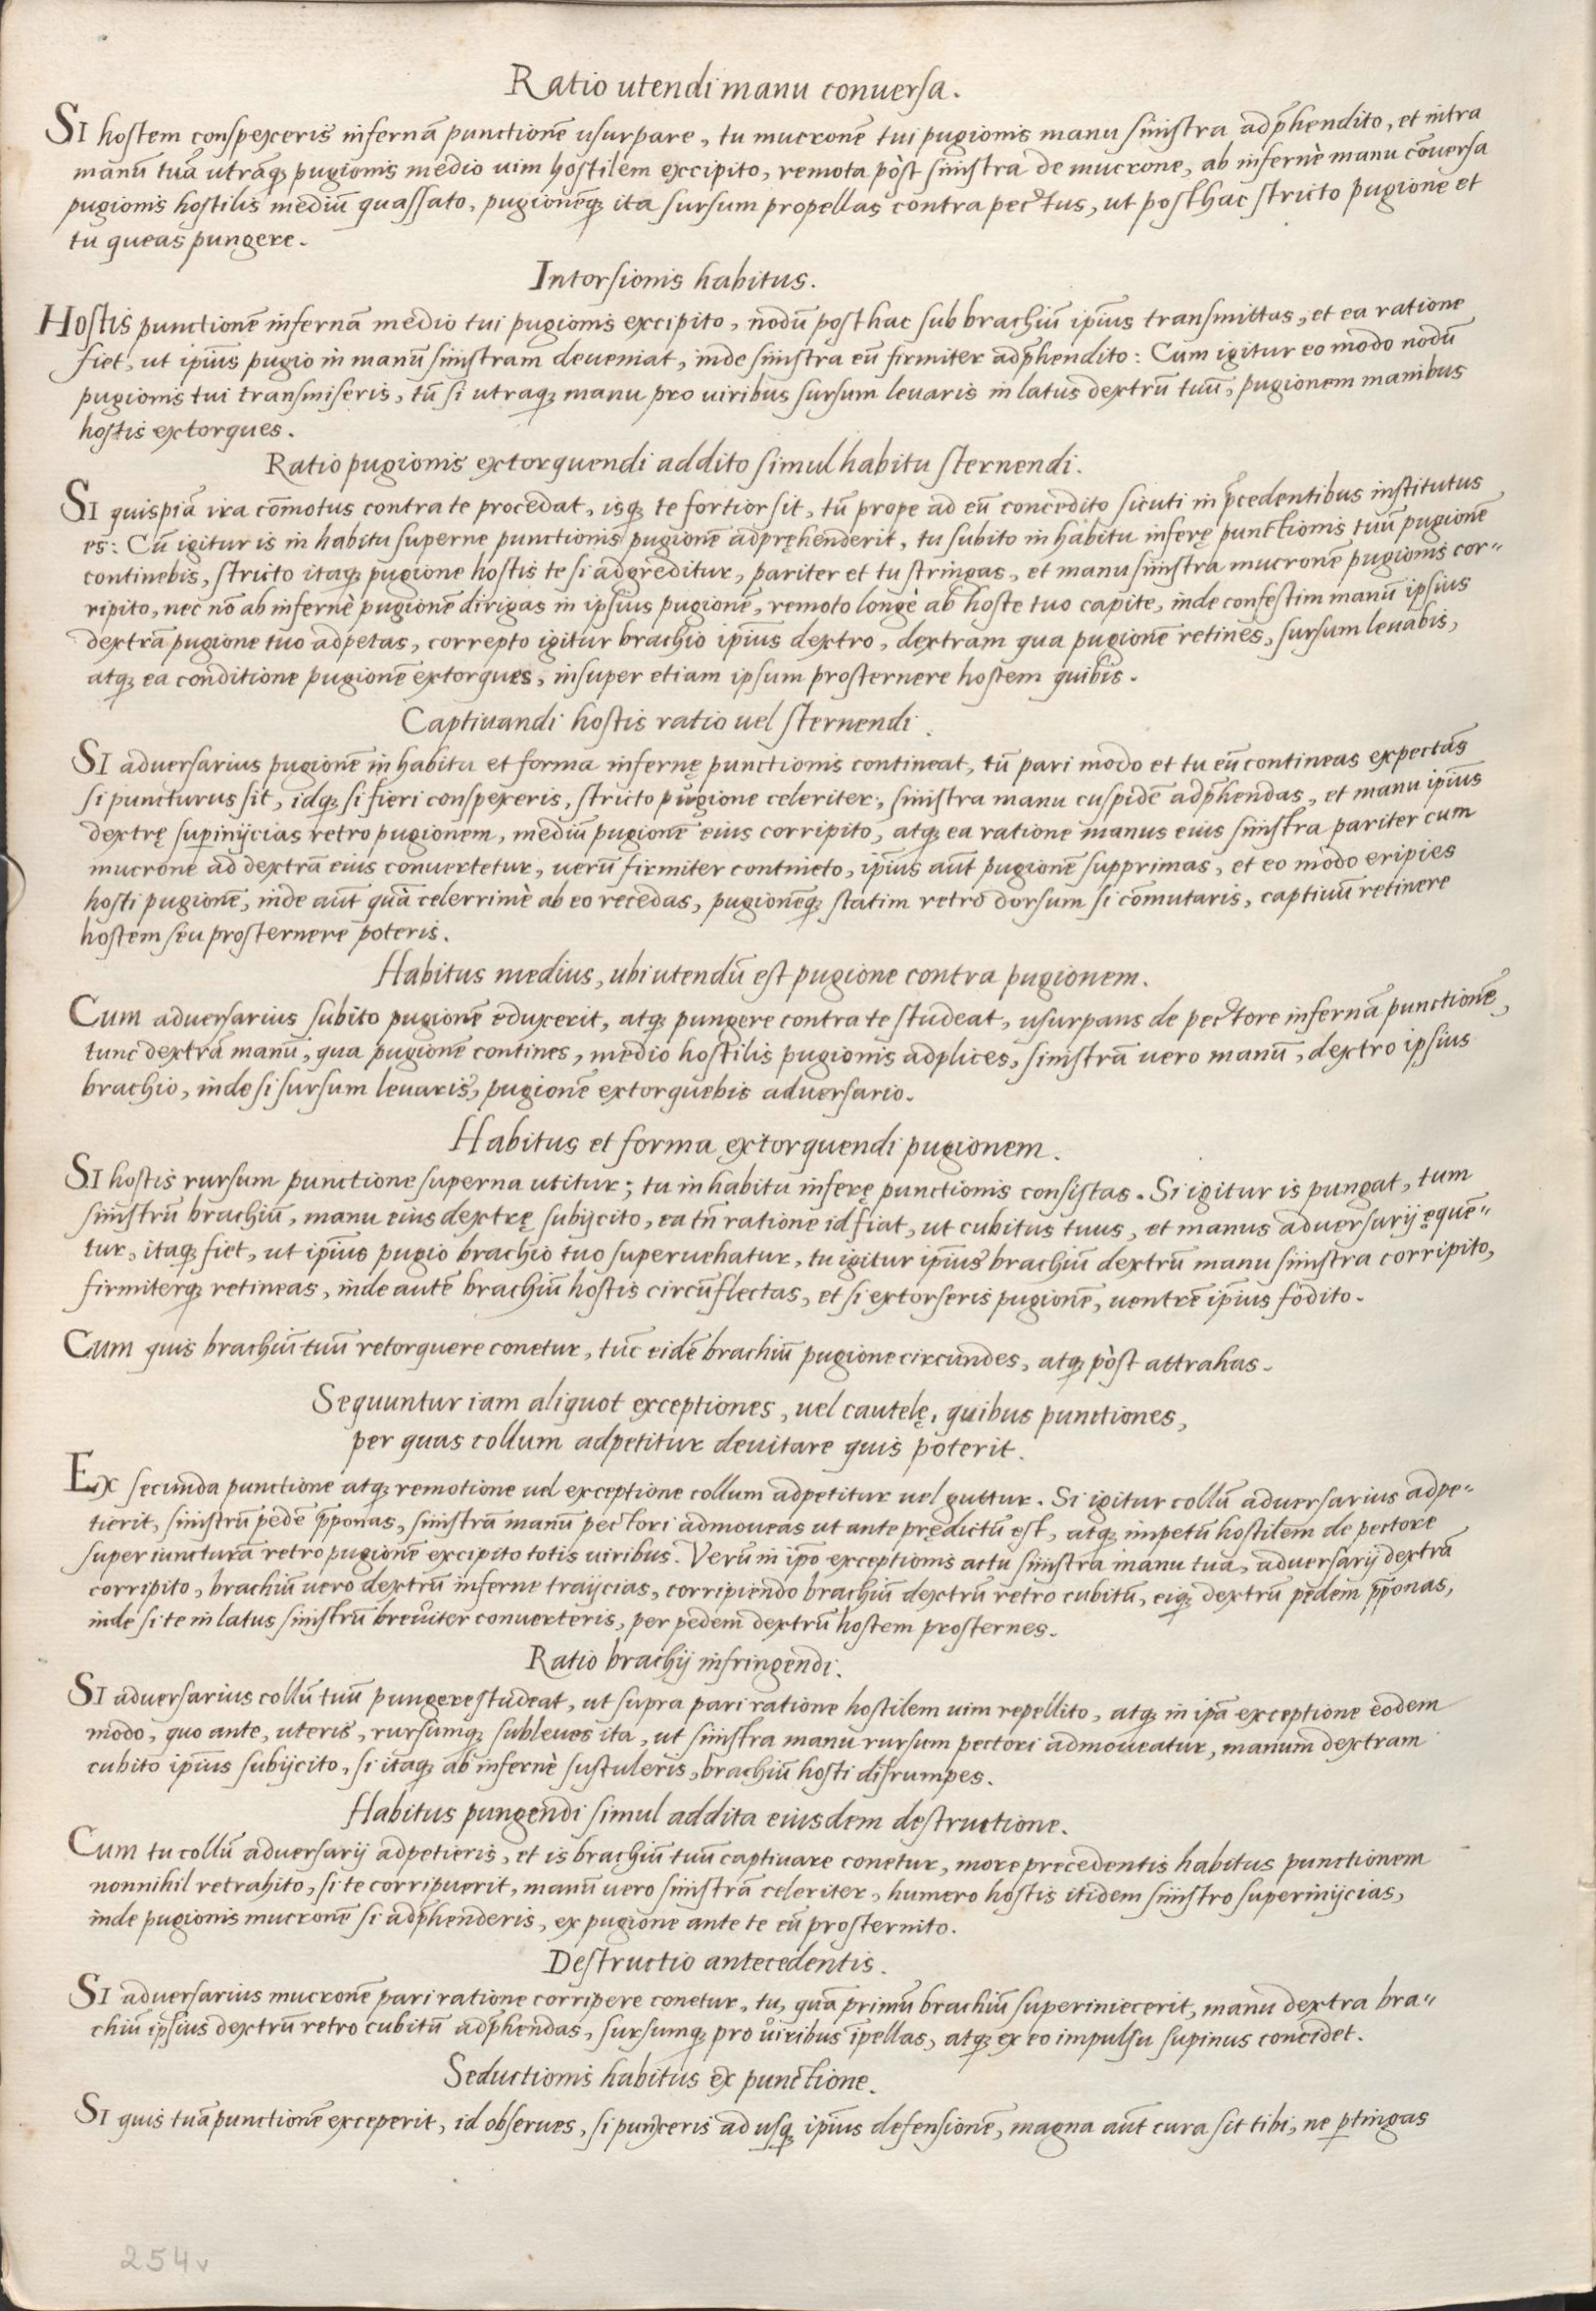 Ratio utendi manu conuersa.
SI hostem conspexceris infernā punctionē usurpare, tu mucronē tui pugionis manu sinistra adp̄hendito, et intra
manū tuā utrāq; pugionis medio uim hostilem excipito, remota pòst sinistra de mucrone, ab infernè manu cōuersa
pugionis hostilis mediū quassato, pugionēq; ita sursum propellas contra pectus, ut posthac stricto pugione et
tu queas pungere.
Intorsionis habitus.
Hostis punctionē infernā medio tui pugionis excipito, nodū posthac sub brachiū ipīus transmittas, et ea ratione
fiet, ut ipīus pugio in manū sinistram deueniat, inde sinistra eū firmiter adp̄hendito: Cum igitur eo modo nodū
pugionis tui transmiseris, tū si utraq; manu pro uiribus sursum leuaris in latus dextrū tuū, pugionem manibus
hostis extorques.
Ratio pugionis extorquendi addito simul habitu sternendi.
SI quispiā ira cōmotus contra te procedat, isq; te fortior sit, tū prope ad eū concedito sicuti in p̄cedentibus institutus
es: Cū igitur is in habitu superne punctionis pugionē adpręhenderit, tu subito in habitu inferę punctionis tuū pugionē
continebis, stricto itaq; pugione hostis te si adgreditur, pariter et tu stringas, et manu sinistra mucronē pugionis cor-
ripito, nec nō ab infernè pugionē dirigas in ipsius pugionē, remoto longè ab hoste tuo capite, inde confestim manū ipsius
dextrā pugione tuo adpetas, correpto igitur brachio ipīus dextro, dextram qua pugionē retines, sursum leuabis,
atq; ea conditione pugionē extorques, insuper etiam ipsum prosternere hostem quibis.
Captiuandi hostis ratio uel sternendi.
SI aduersarius pugionē in habitu et forma infernę punctionis contineat, tū pari modo et tu eū contineas expectās
si puncturus sit, idq; si fieri conspexeris, stricto pugione celeriter, sinistra manu cuspidē adp̄hendas, et manu ipīus
dextrę supiniȷcias retro pugionem, mediū pugionē eius corripito, atq; ea ratione manus eius sinistra pariter cum
mucrone ad dextrā eius conuertetur, uerū firmiter contineto, ipīus aūt pugionē supprimas, et eo modo eripies
hosti pugionē, inde aūt quā celerrimè ab eo recedas, pugionēq; statim retro dorsum si cōmutaris, captiuū retinere
hostem seu prosternere poteris.
Habitus medius, ubi utendū est pugione contra pugionem.
Cum aduersarius subito pugionē eduxerit, atq; pungere contra te studeat, usurpans de pectore infernā punctionē,
tunc dextrā manū, qua pugionē contines, medio hostilis pugionis adplices, sinistrā uero manū, dextro ipsius
brachio, inde si sursum leuaris, pugionē extorquebis aduersario.
Habitus et forma extorquendi pugionem.
SI hostis rursum punctione superna utitur; tu in habitu inferę punctionis consistas. Si igitur is pungat, tum
sinistrū brachiū, manu eius dextrę subijcito, ea tn̄ ratione id fiat, ut cubitus tuus, et manus aduersarij ęquē-
tur, itaq; fiet, ut ipīus pugio brachio tuo superuehatur, tu igitur ipīus brachiū dextrū manu sinistra corripito,
firmiterq; retineas, inde autē brachiū hostis circūflectas, et si extorseris pugionē, uentrē ipīus fodito.
Cum quis brachiū tuū retorquere conetur, tūc eidē brachiū pugione circundes, atq; pòst attrahas.
Sequuntur iam aliquot exceptiones, uel cautelę, quibus punctiones,
per quas collum adpetitur deuitare quis poterit.
Ex secunda punctione atq; remotione uel exceptione collum adpetitur uel guttur. Si igitur collū aduersarius adpe-
tierit, sinistrū pedē p̄ponas, sinistrā manū pectori admoueas ut ante prędictū est, atq; impetū hostilem de pectore
super iuncturā retro pugionē excipito totis uiribus. Verū in ipō exceptionis actu sinistra manu tua, aduersarij dextrā
corripito, brachiū uero dextrū inferne traijcias, corripiendo brachiū dextrū retro cubitū, eiq; dextrū pedem p̄ponas,
inde si te in latus sinistrū breuiter conuerteris, per pedem dextrū hostem prosternes.
Ratio brachij infringendi.
SI aduersarius collū tuū pungere studeat, ut supra pari ratione hostilem uim repellito, atq; in ipā exceptione eodem
modo, quo ante, uteris, rursumq; subleues ita, ut sinistra manu rursum pectori admoueatur, manum dextram
cubito ipīus subijcito, si itaq; ab infernè sustuleris, brachiū hosti disrumpes.
Habitus pungendi simul addita eiusdem destructione.
Cum tu collū aduersarij adpetieris, et is brachiū tuū captiuare conetur, more precedentis habitus punctionem
nonnihil retrahito, si te corripuerit, manū uero sinistrā celeriter, humero hostis itidem sinistro superinijcias,
inde pugionis mucronē si adp̄henderis, ex pugione ante te eū prosternito.
Destructio antecedentis.
SI aduersarius mucronē pari ratione corripere conetur, tu, quā primū brachiū superiniecerit, manu dextra bra-
chiū ipsius dextrū retro cubitū adp̄hendas, sursumq; pro uiribus īpellas, atq; ex eo impulsu supinus concidet.
Seductionis habitus ex punctione.
SI quis tuā punctionē exceperit, id obserues, si punxeris ad usq; ipīus defensionē, magna aūt cura sit tibi, ne ptingas
254v